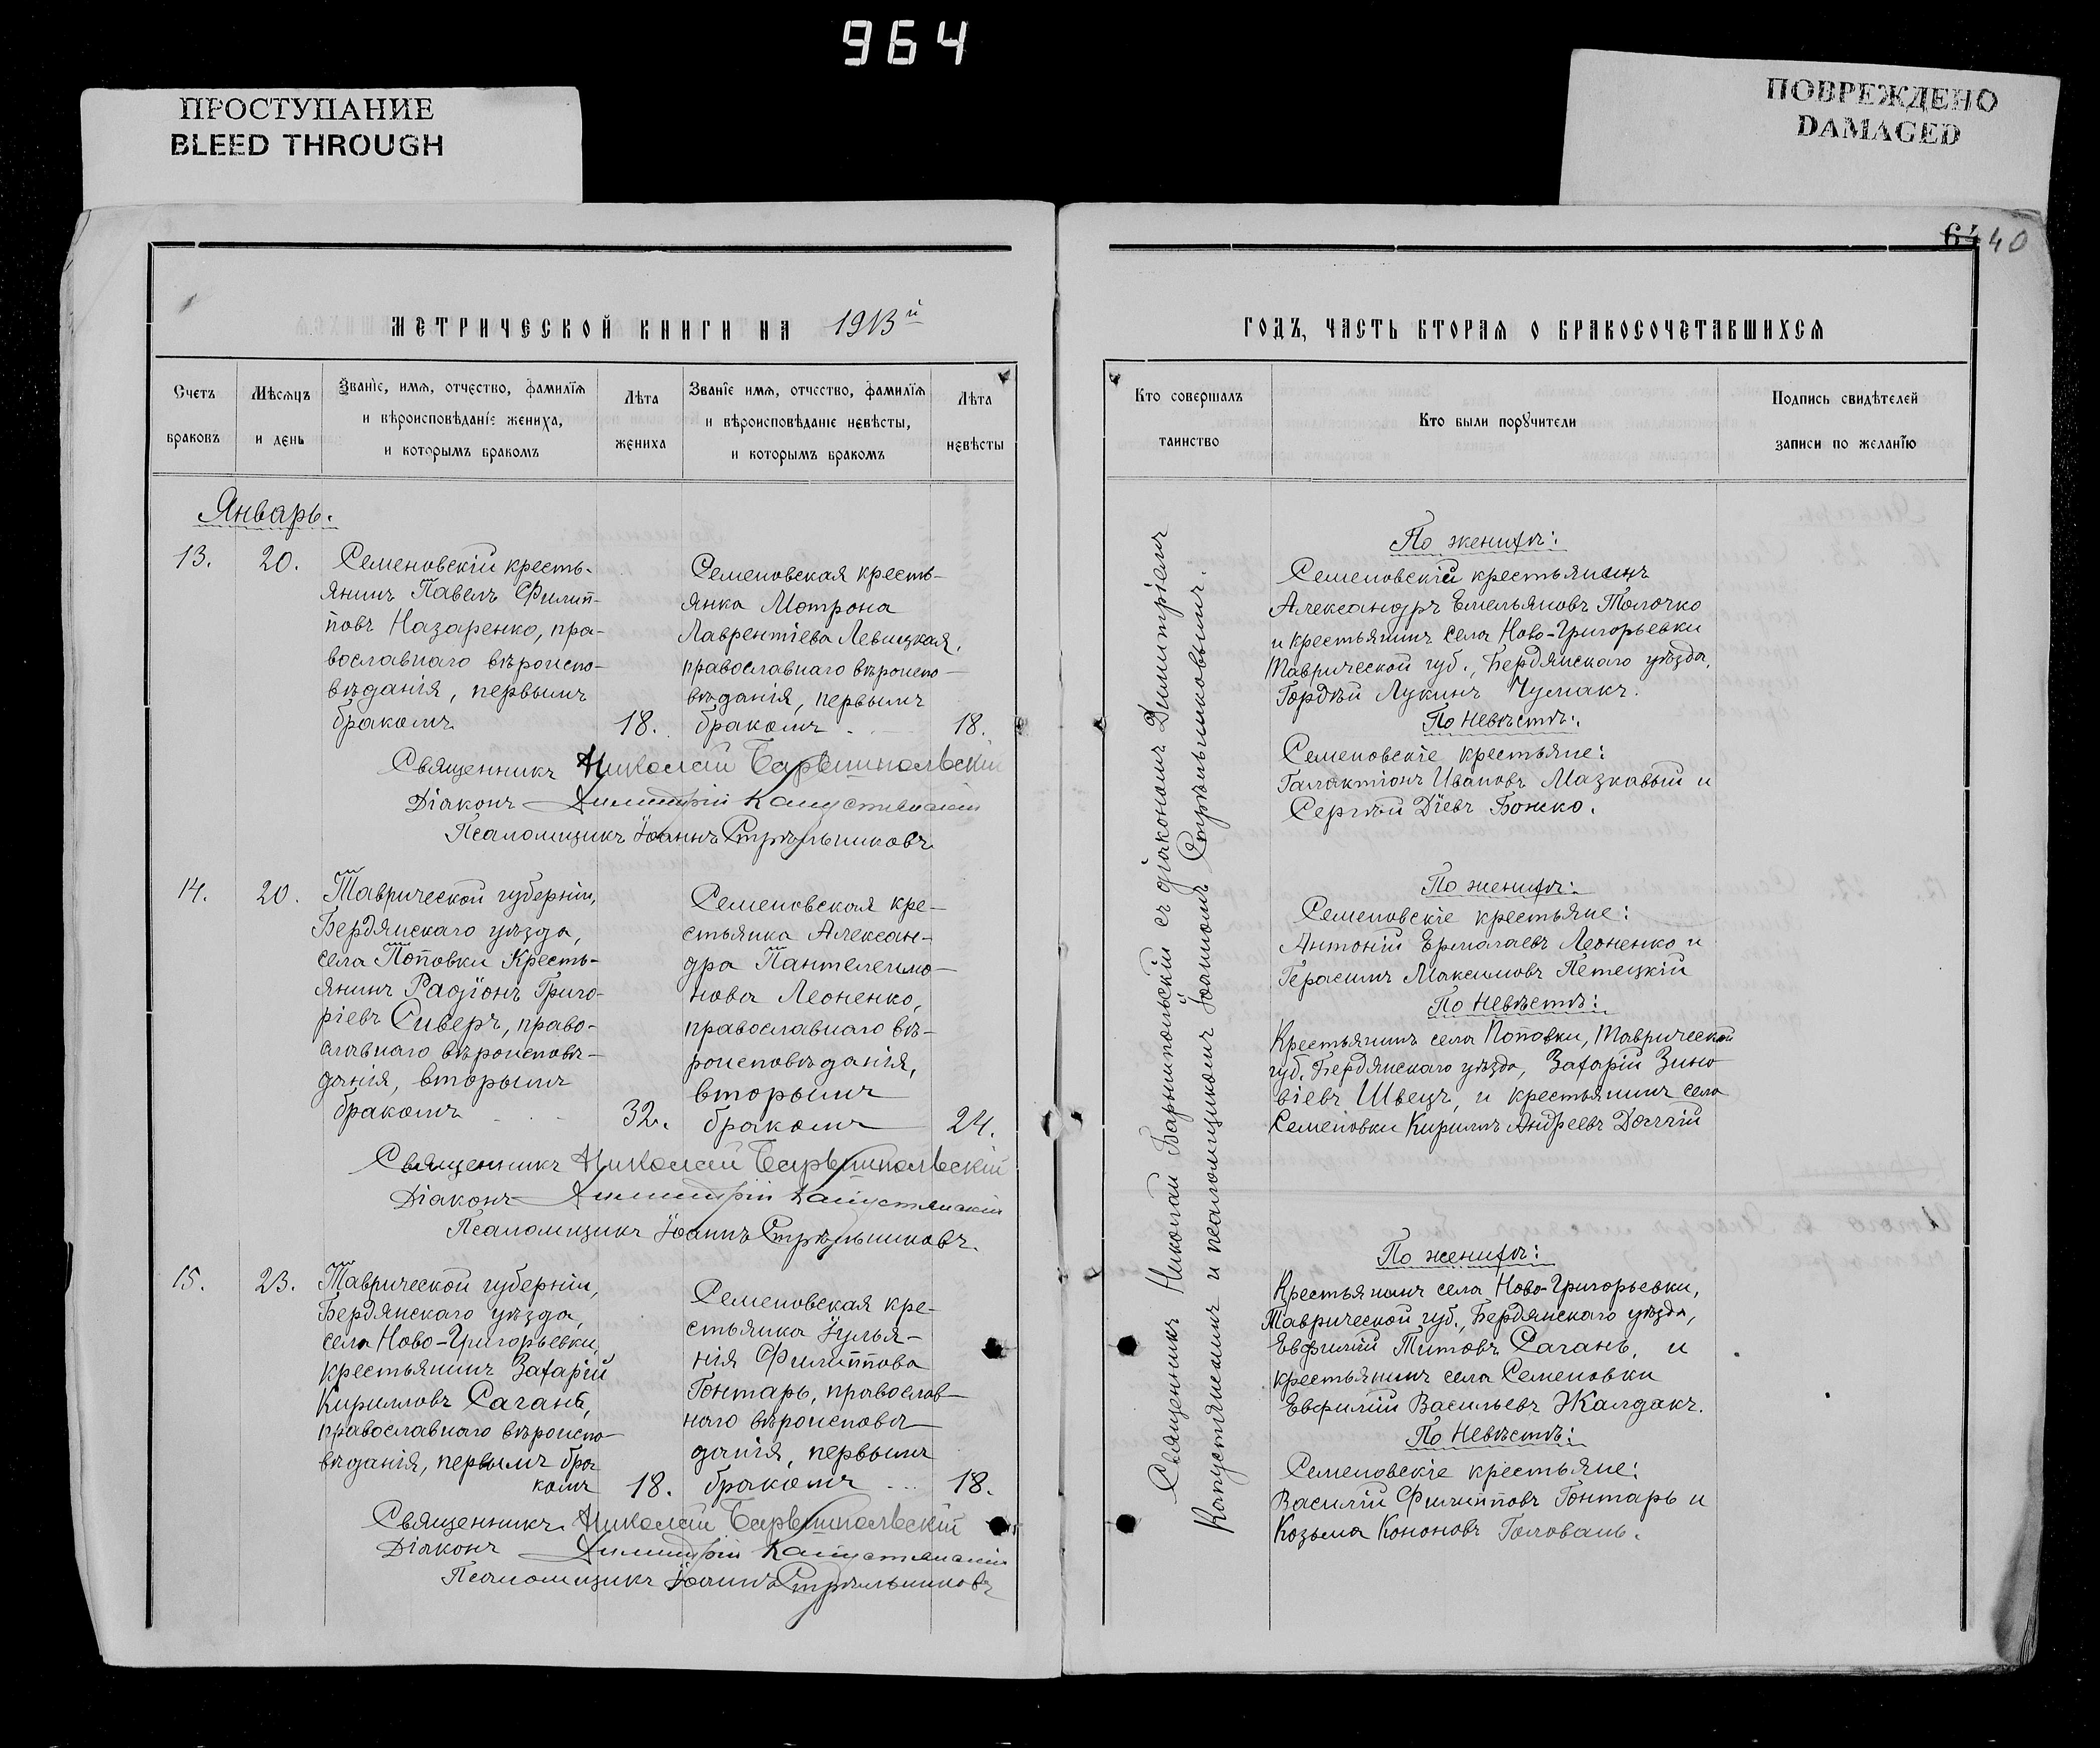 964
ПРОСТУПАНИЕ
BLEED THROUGH
ПОВРЕЖДЕНО
DAMAGED
64 40
МЕТРИЧЕСКОЙ КНИГИ НА 1913й
Счетъ браковъ
Мѣсяцъ и день
Званіе, имя, отчество, фамилія
и вѣроисповѣданіе жениха,
и которымъ бракомъ
Лѣта жениха
Званіе имя, отчество, фамилія
и вѣроисповѣданіе невѣсты,
и которымъ бракомъ
Лѣта невѣсты
Январь.
13. 20.
Семеновскій кресть-
янинъ Павелъ Филип-
повъ Назаренко, пра-
вославнаго вѣроиспо-
вѣданія, первымъ
бракомъ 18.
Семеновская кресть-
янка Мотрона
Лаврентіева Левицкая,
православнаго вѣроиспо-
вѣданія, первымъ
бракомъ 18.
Священникъ Николай Барышпольскій
Діаконъ Димитрій Капустянскій
Псаломщикъ Іоаннъ Стрѣльниковъ
14. 20.
Таврической губерніи,
Бердянскаго уѣзда,
села Поповки Кресть-
янинъ Радіонъ Григо-
ріевъ Сиверъ, право-
славнаго вѣроисповѣ-
данія, вторымъ
бракомъ 32.
Семеновская кре-
стьянка Алексан-
дра Пантелеимо-
нова Леоненко,
православнаго вѣ-
роисповѣданія,
вторымъ
бракомъ 24.
Священникъ Николай Барышпольскій
Діаконъ Димитрій Капустянскій
Псаломщикъ Іоаннъ Стрѣльниковъ.
15. 23.
Таврической губерніи,
Бердянскаго уѣзда,
села Ново-Григорьевки,
крестьянинъ Захарій
Кирилловъ Сагань,
православнаго вѣроиспо-
вѣданія, первымъ бра-
комъ 18.
Семеновская кре-
стьянка Іулья-
нія Филиппова
Гонтарь, православ-
наго вѣроисповѣ-
данія, первымъ
бракомъ ... 18.
Священникъ Николай Барышпольскій
Діаконъ Димитрій Капустянскій
Псаломщикъ Іоаннъ Стрѣльниковъ
ГОДЪ, ЧАСТЬ ВТОРАЯ О БРАКОСОЧЕТАВШИХСЯ
Кто совершалъ таинство
Кто были поручители
Подпись свидѣтелей
записи по желанію
Священникъ Николай Барышпольскій съ діакономъ Димитріемъ
Капустянскимъ и псаломщикомъ Іоанномъ Стрѣльниковымъ.
По женихѣ:
Семеновскій крестьянинъ
Александръ Емельяновъ Толочко
и крестьянинъ села Ново-Григорьевки
Таврической губ., Бердянскаго уѣзда,
Гордѣй Лукинъ Чумакъ.
По невѣстѣ:
Семеновскіе крестьяне:
Галактіонъ Ивановъ Мазкавый и
Сергѣй Діевъ Божко.
По женихѣ:
Семеновскіе крестьяне:
Антоній Ермолаевъ Леоненко и
Герасимъ Максимовъ Петецкій
По невѣстѣ:
Крестьянинъ села Поповки, Таврической
губ. Бердянскаго уѣзда, Захарій Зино-
віевъ Швецъ, и крестьянинъ села
Семеновки Кириллъ Андреевъ Долгій
По женихѣ:
Крестьянинъ села Ново-Григорьевки,
Таврической губ., Бердянскаго уѣзда,
Евфимій Титовъ Сагань, и
крестьянинъ села Семеновки
Евфимій Васильевъ Жалдакъ.
По невѣстѣ:
Семеновскіе крестьяне:
Василій Филипповъ Гонтарь и
Козьма Кононовъ Головань.